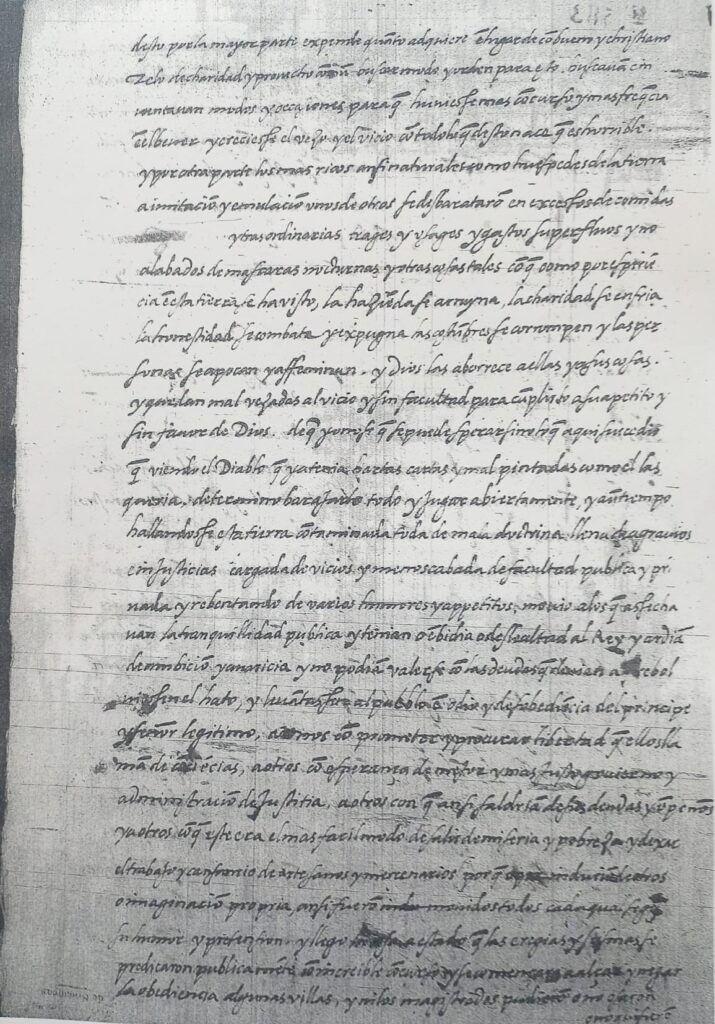 desto por la mayor parte expende quãto adquiere. En lugar de cõ buem y christiano
zelo de charidad y provecho comũ buscar modo y orden para esto, buscavan e in
ventavan modos y occasiones para q̃ huviesse mas cõcurso y mas freq̃cia
en el bever y creciesse el vezo y el vicio cõ todo lo q̃ desto nace q̃ es horrible.
y por otra parte los mas ricos ansi naturales como huespedes de la tierra
a imitaciõ y emulaciõ unos de otros se desbarataron en excessos de comidas
y traordinarias trages y usages y gastos superfluos y no
alabados de mascaras nocturnas y otras cosas tales cõ q̃ como por esperiẽ
cia en esta tierra se ha visto, la haziẽda se arruyna, la charidad se enfria
la honestidad se combate y expugna las costũbres se corrompen y las per
sonas se apocan y affeminan. y Dios las aborrece a ellas y a sus cosas.
y quedan mal vezados al vicio y sin facultad para cũplirlo a su apetito y
sin favor de Dios. de q̃ yo no se q̃ se puede esperar sino lo q̃ aqui succedio
q̃ viendo el Diablo q̃ ya tenia hartas cartas y mal pintadas como el las
queria, determino barajarlo todo y jugar abiertamente, y a un tiempo
hallandosse esta tierra cõtaminada toda de mala doctrina llena de agravios
e injusticias cargada de vicios y menoscabada de facultad publica y pri
vada y rebentando de varios humores y appetitos, movio a los q̃ assecha
van la tranquillidad publica y tenian o ẽbidia o deslealtad al Rey y ardiã
de ambiciõ y avaricia y no podiã valerse cõ las deudas q̃ devian a rebol
viessen el hato, y levãtassen al pueblo ẽ odio y desobediẽcia del principe
y señor legitimo, a unos cõ prometer y procurar libertad q̃ ellos lla
mã de cõsciẽcias, a otros cõ esperança de mejor y mas justo govierno y
administraciõ de Justitia, a otros con q̃ ansi saldriã de sus deudas y ẽpeños
y a otros cõ q̃ este era el mas facil modo de salir de miseria y pobreza y dexar
el trabajo y cansancio de artesanos y mercenarios por q̃ induciẽdo a otros
o imaginaciõ propria, ansi fuerõ movidos todos cada qual segũ
su humor y pretension. y llego a estado q̃ las eregias y scismas se
predicaron publicamẽte cõ increible cõcurso y se començaron a alçar y negar
la obediencia algunas villas, y ni los magistrados pudierõ o no osaron
o no quisierõ